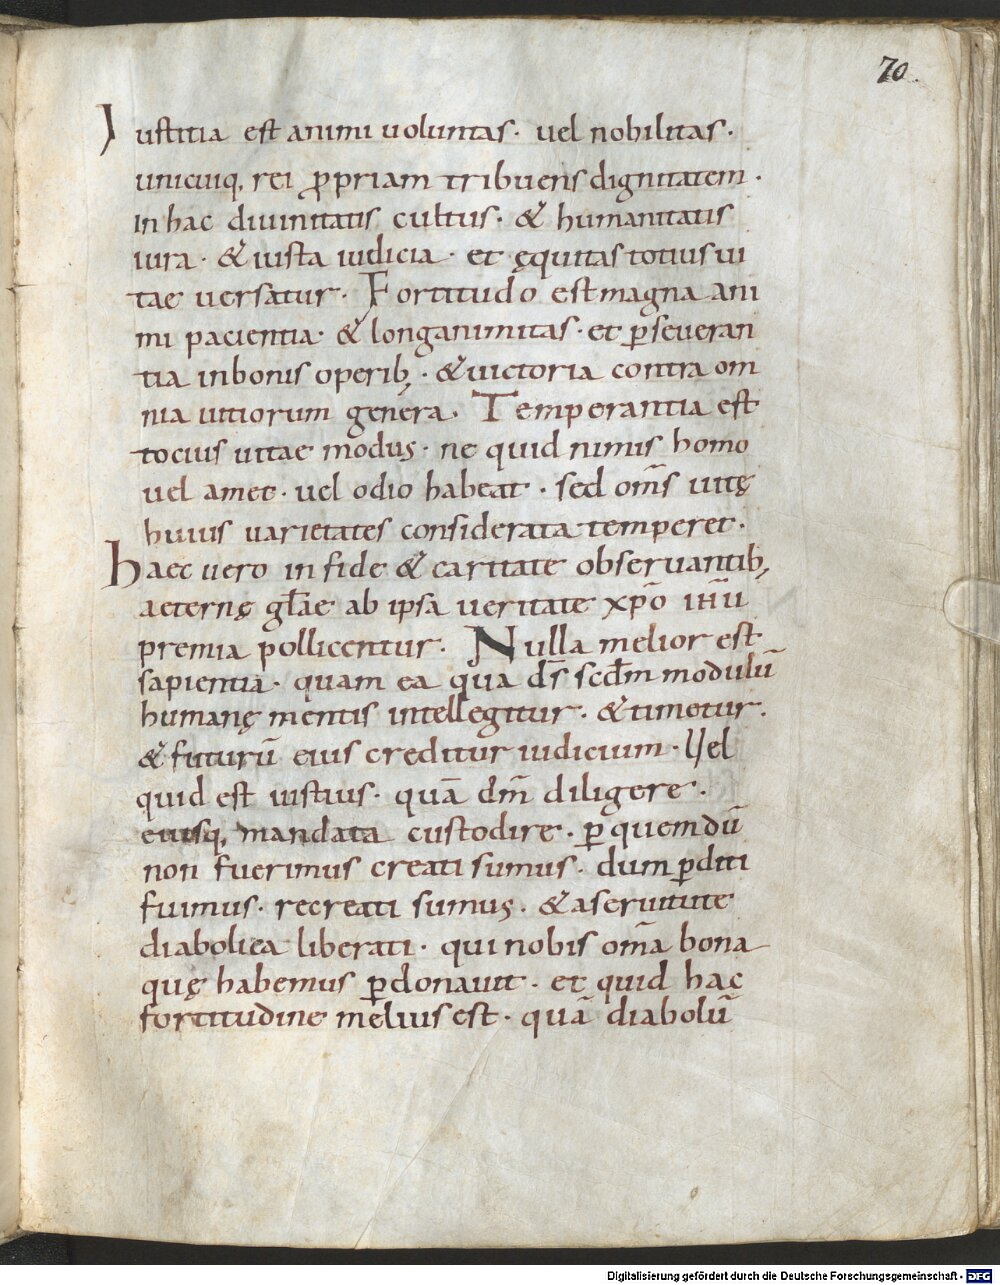 70
Iustitia est animi uoluntas · uel nobilitas ·
unicuiq, rei p̱ropriam tribuens dignitatem ·
in hac diuinitatis cultus · & humanitatis
iura · & iusta iudicia · et ęquitas totius ui
tae uersatur · Fortitudo est magna ani
mi pacientia · & longanimitas · et ꝑseueran
tia in bonis operib; · & uictoria contra om
nia uitiorum genera · Temperantia est
tocius uitae modus · ne quid nimis homo
uel amet · uel odio habeat · sed om̄s uitę
huius varietates considerata temperet ·
haec uero in fide & caritate obseruantib;
aeternę gl̄ae ab ipsa ueritate xp̄o ih̄u
premia pollicentur · Nulla melior est
sapientia · quam ea qua d̄s scd̄m modulū
humanę mentis intellegitur · & timetur ·
& futurū eius creditur iudicium · Uel
quid est iustius · quā dm̄ diligere ·
eiusq, mandata custodire · ꝑ quem dū
non fuerimus creati sumus · dum ꝑditi
fuimus · recreati sumus · & a seruitute
diabolica liberati · qui nobis om̄a bona
quę habemus ꝑdonauit · et quid hac
fortitudine melius est · quā diabolū
Digitalisierung gefördert durch die Deutsche Forschungsgemeinschaft - DFG